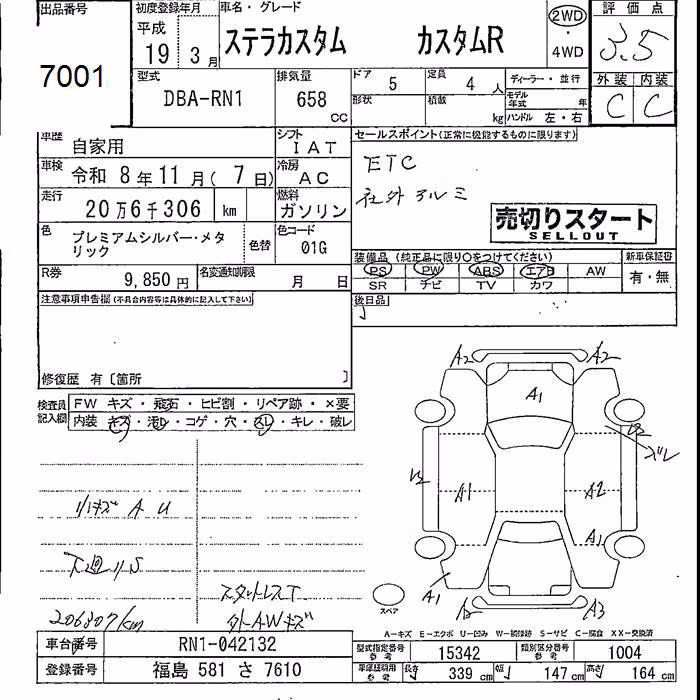 出品番号
7001
初度登録年月
平成
19 3月
車名・グレード
ステラカスタム カスタムR
2WD
・
4WD
評価点
3.5
外装 内装
C C
型式
DBA-RN1
排気量
658
CC
ドア 5
定員 4人
形状
積載 kg
ディーラー・並行
モデル年式 年
ハンドル 左・右
車歴
自家用
シフト
IAT
車検
令和 8年11月(7日)
冷房
AC
走行
20万6千306 km
燃料
ガソリン
色
プレミアムシルバー・メタ
リック
色替
色コード
01G
R券
9,850円
名変通知期限
月 日
セールスポイント(正常に機能するものに限ります)
ETC
社外アルミ
売切りスタート
SELLOUT
装備品(純正品に限り○をつけてください)
PS PW ABS エアB AW
SR ナビ TV カワ
新車保証書
有・無
後日品
注意事項申告欄(不具合内容等は具体的に記入して下さい)
修復歴 有〔箇所 〕
検査員
記入欄
FW キズ・飛石・ヒビ割・リペア跡・×要
内装 キズ・汚レ・コゲ・穴・スレ・キレ・破レ
リバキズ A U
下廻りS
206307km
スタットレスT
外AWキズ
A2
A2
A1
A1
A2
A1
A1
A3
ズレ
スペア
A-キズ E-エクボ U-凹み W-補修跡 S-サビ C-腐食 XX-交換済
車台番号
RN1-042132
登録番号
福島 581 さ 7610
型式指定番号
参考
15342
類別区分番号
参考
1004
車体証明用
参考
長さ 339 cm
幅 147 cm
高さ 164 cm